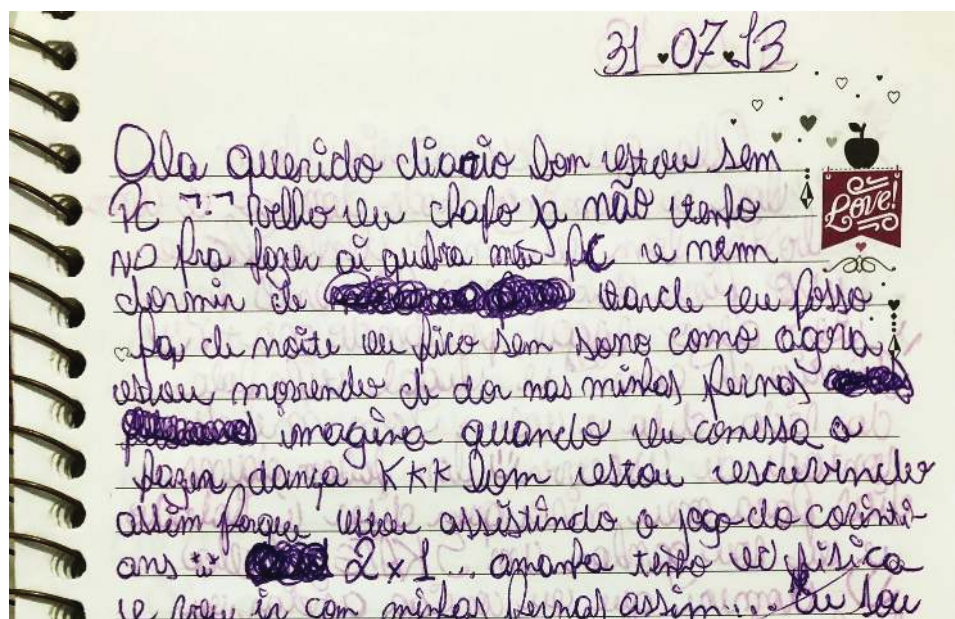 31.07.13
Ola querido diario bom estou sem
PC -.- velho eu chapo ja não tenho
nd pra fazer ai quebra meu pc e nem
dormir de tarde eu posso
pq de noite eu fico sem sono como agora
Love!
estou morrendo de dor nas minhas pernas
imagina quando eu comessa a
fazer dança KKK bom estou escrevindo
assim porque estou assistindo o jogo do corinti-
ans 2x1... amanha tenho ed física
e vou ir com minhas pernas assim... Eu sou